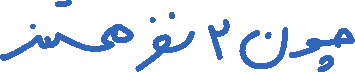 چون ۲ نفر هستن